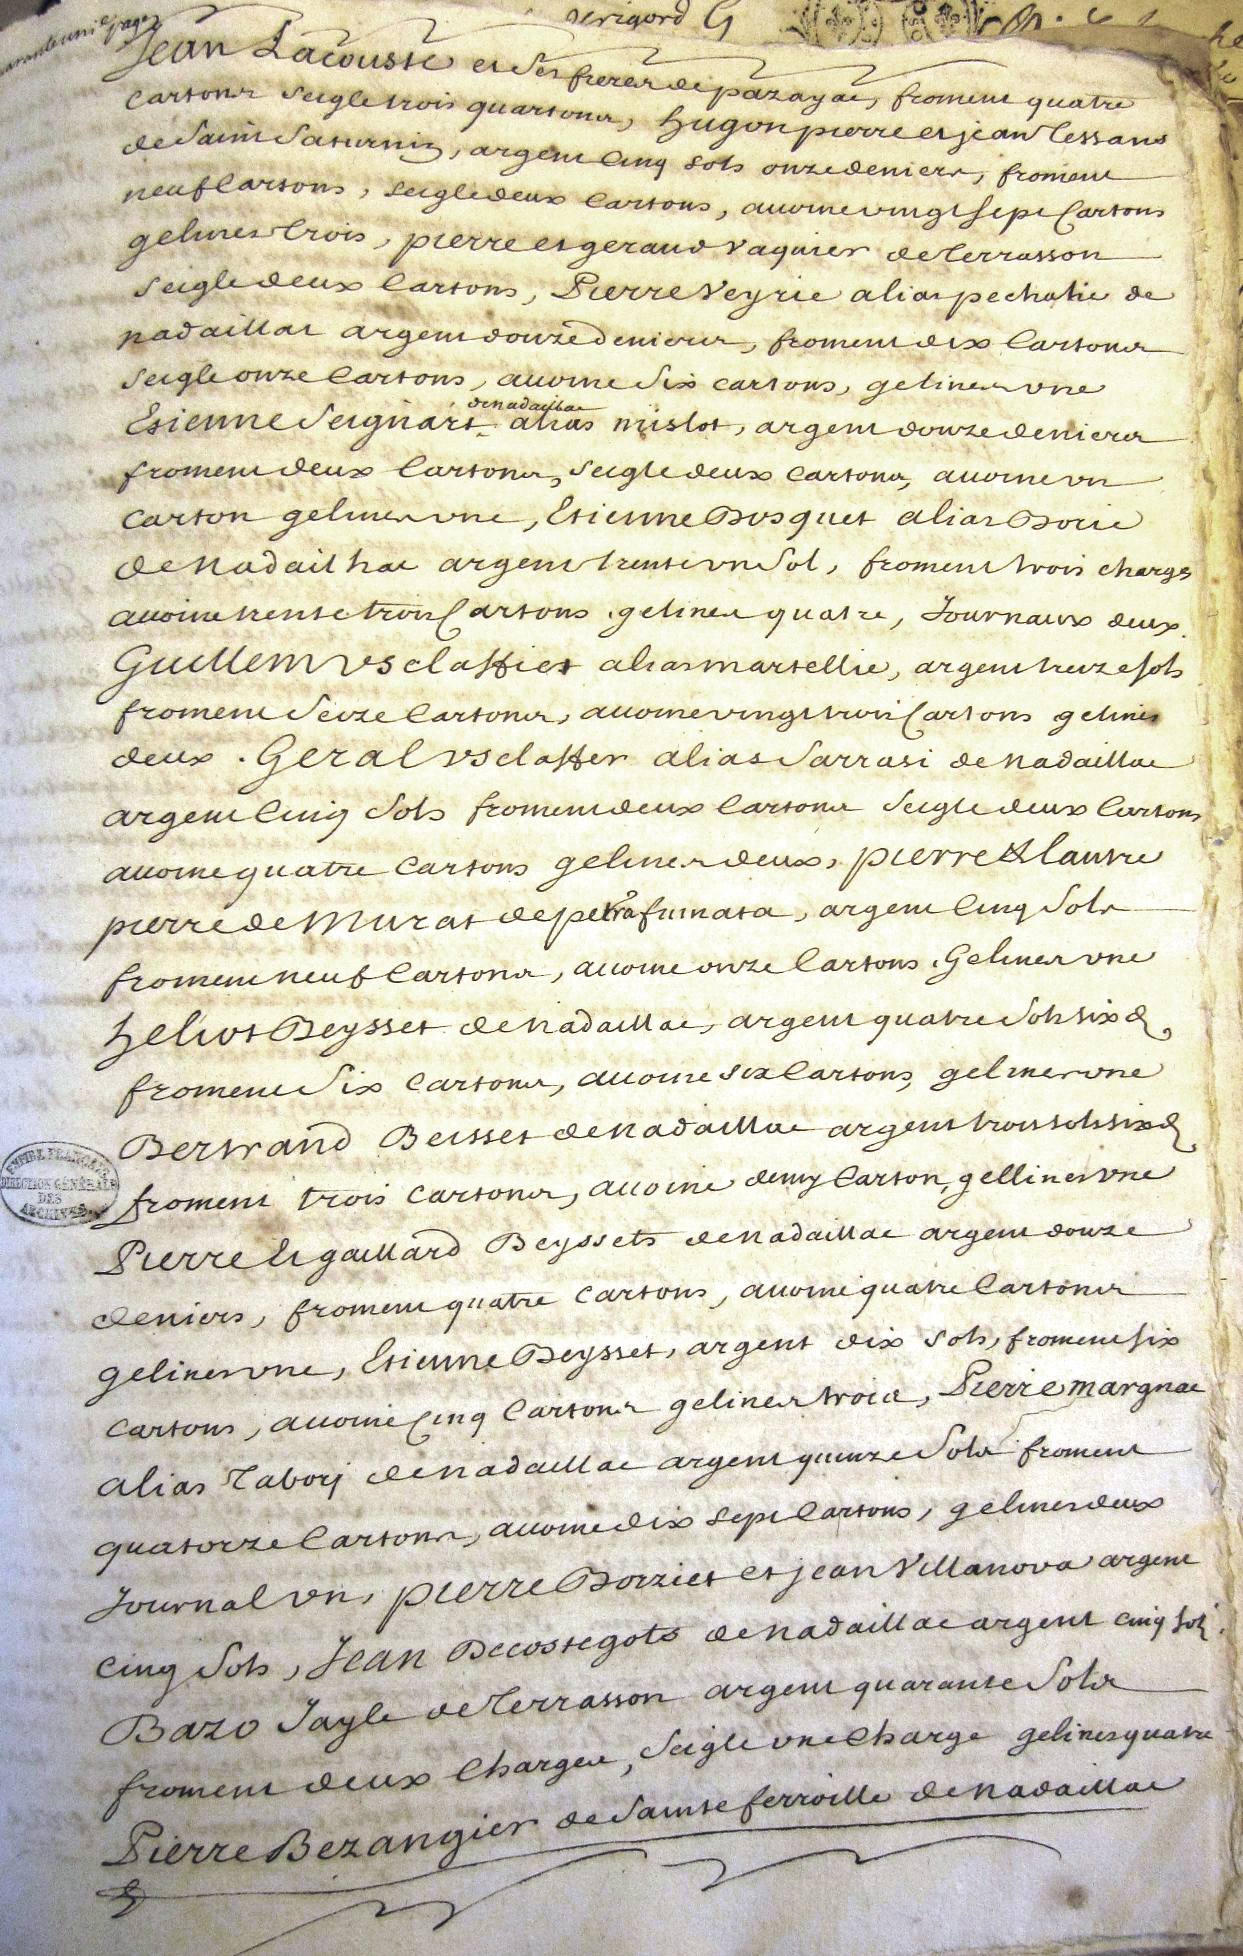 perigord
Jean Lacouste et ses freres de pazayac, froment quatre
cartons seigle trois quartons, hugon pierre et jean Tessans
de Saint Saturnin, argent Cinq sols onze deniers, froment
neuf Cartons, seigle deux Cartons, auoine vingt sept Cartons
gelines trois, pierre et geraud vaquier de Terrasson
seigle deux Cartons, Pierre Veyrie alias pechatie de
nadaillac argent douze deniers, froment dix Cartons
seigle onze Cartons, auoine six cartons, gelines vne
de nadaillac
Etienne Seignart alias mislot, argent douze deniers
froment deux Cartons, seigle deux cartons, auoine vn
carton gelines vne, Etienne Bosquet alias Borie
de nadailhac argent trente vn sol, froment trois charges
auoine trente trois Cartons gelines quatre, Journaux deux.
Guillem vsclaffiet alias martellie, argent treize sols
froment seize Cartons, auoine vingt trois Cartons gelines
deux. Geral vsclaffer alias sarrasi de nadaillac
argent Cinq sols froment deux Cartons seigle deux Cartons
auoine quatre cartons gelines deux, pierre & lautre
pierre de Murat de petrafumata, argent Cinq sols
froment neuf Cartons, auoine onze Cartons. Gelines vne
heliot Beysset de nadaillac, argent quatre sols six d
froment six cartons, auoine six Cartons, gelines vne
Bertrand Beisset de nadaillac argent trois sols six d
froment trois cartons, auoine demy Carton, gellines vne
Pierre et gaillard Beyssets de nadaillac argent douze
deniers, froment quatre cartons, auoine quatre Cartons
gelines vne, Etienne Beysset, argent dix sols, froment six
cartons, auoine Cinq Cartons gelines trois, Pierre margnac
alias Taborj de nadaillac argent quinze sols froment
quatorze Cartons, auoine dix sept Cartons, gelines deux
Journal vn, pierre Borziet et jean Villanova argent
cinq sols, Jean Decostegots de nadaillac argent cinq sols.
Bazo Jayle de Terrasson argent quarante sols
froment deux Charges, seigle vne Charge gelines quatre
Pierre Bezangier de Sainte ferroille de nadaillac
EMPIRE FRANÇAIS
DIRECTION GÉNÉRALE
DES
ARCHIVES